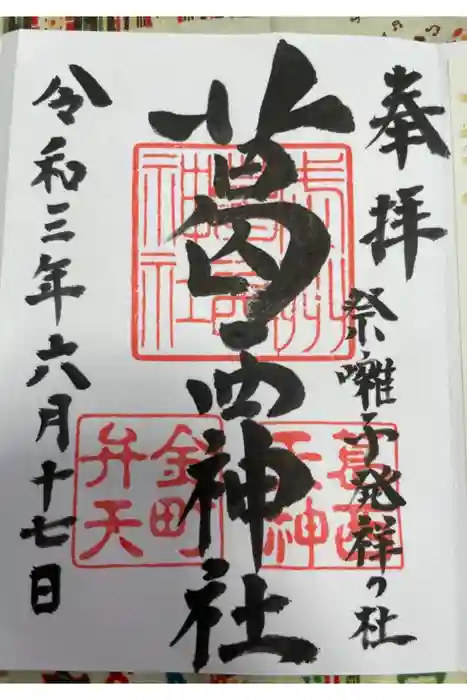 奉拝
祭囃子発祥の社
葛西神社
令和三年六月十七日
葛西
天神
金町
弁天